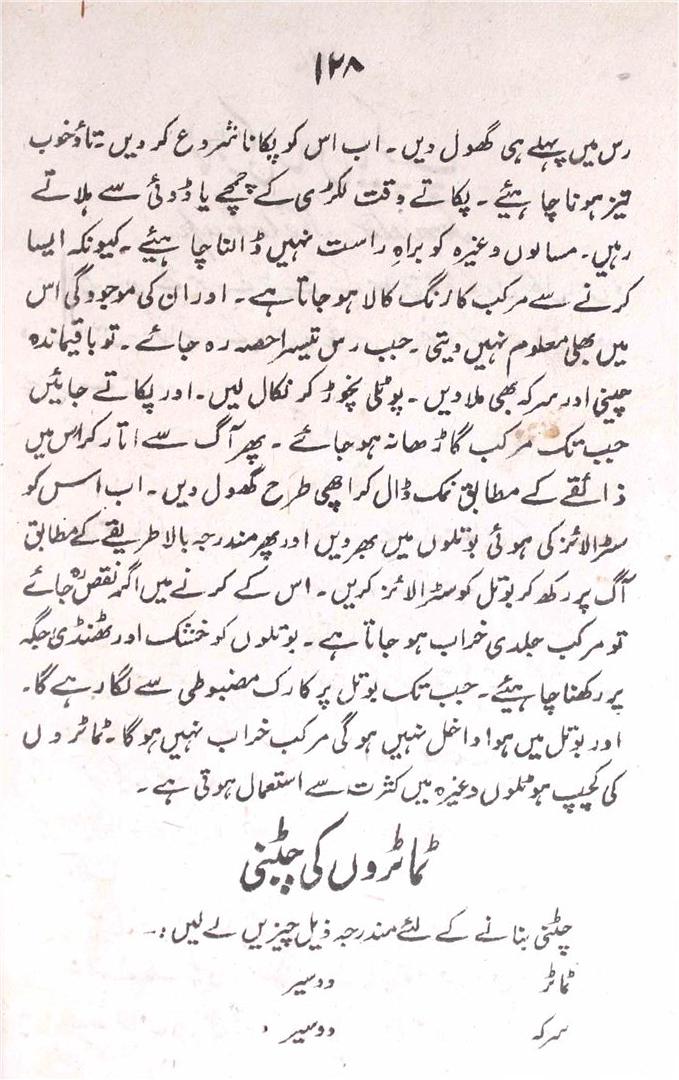 ۱۲۸
رس میں پہلے ہی گھول دیں۔ اب اس کو پکانا شروع کر دیں۔ تاؤ خوب
تیز ہونا چاہیئے۔ پکاتے وقت لکڑی کے چمچے یا ڈوئی سے ہلاتے
رہیں۔ مسالوں وغیرہ کو براہِ راست نہیں ڈالنا چاہیئے۔ کیونکہ ایسا
کرنے سے مرکب کا رنگ کالا ہو جاتا ہے۔ اور ان کی موجودگی اس
میں بھلی معلوم نہیں دیتی۔ جب رس تیسرا حصہ رہ جائے۔ تو باقیماندہ
چینی اور سرکہ بھی ملا دیں۔ پوٹلی نچوڑ کر نکال لیں۔ اور پکاتے جائیں
جب تک مرکب گاڑھا نہ ہو جائے۔ پھر آگ سے اتار کر اس میں
ذائقے کے مطابق نمک ڈال کر اچھی طرح گھول دیں۔ اب اس کو
سٹرالائز کی ہوئی بوتلوں میں بھر دیں اور پھر مندرجہ بالا طریقے کے مطابق
آگ پر رکھ کر بوتل کو سٹرالائز کریں۔ اس کے کرنے میں اگر نقص رہ جائے
تو مرکب جلدی خراب ہو جاتا ہے۔ بوتلوں کو خشک اور ٹھنڈی جگہ
پر رکھنا چاہیئے۔ جب تک بوتل پر کارک مضبوطی سے لگا رہے گا۔
اور بوتل میں ہوا داخل نہیں ہو گی مرکب خراب نہیں ہو گا۔ ٹماٹروں
کی کچپ ہوٹلوں وغیرہ میں کثرت سے استعمال ہوتی ہے۔
ٹماٹروں کی چٹنی
چٹنی بنانے کے لئے مندرجہ ذیل چیزیں لے لیں :۔
ٹماٹر دو سیر
سرکہ دو سیر